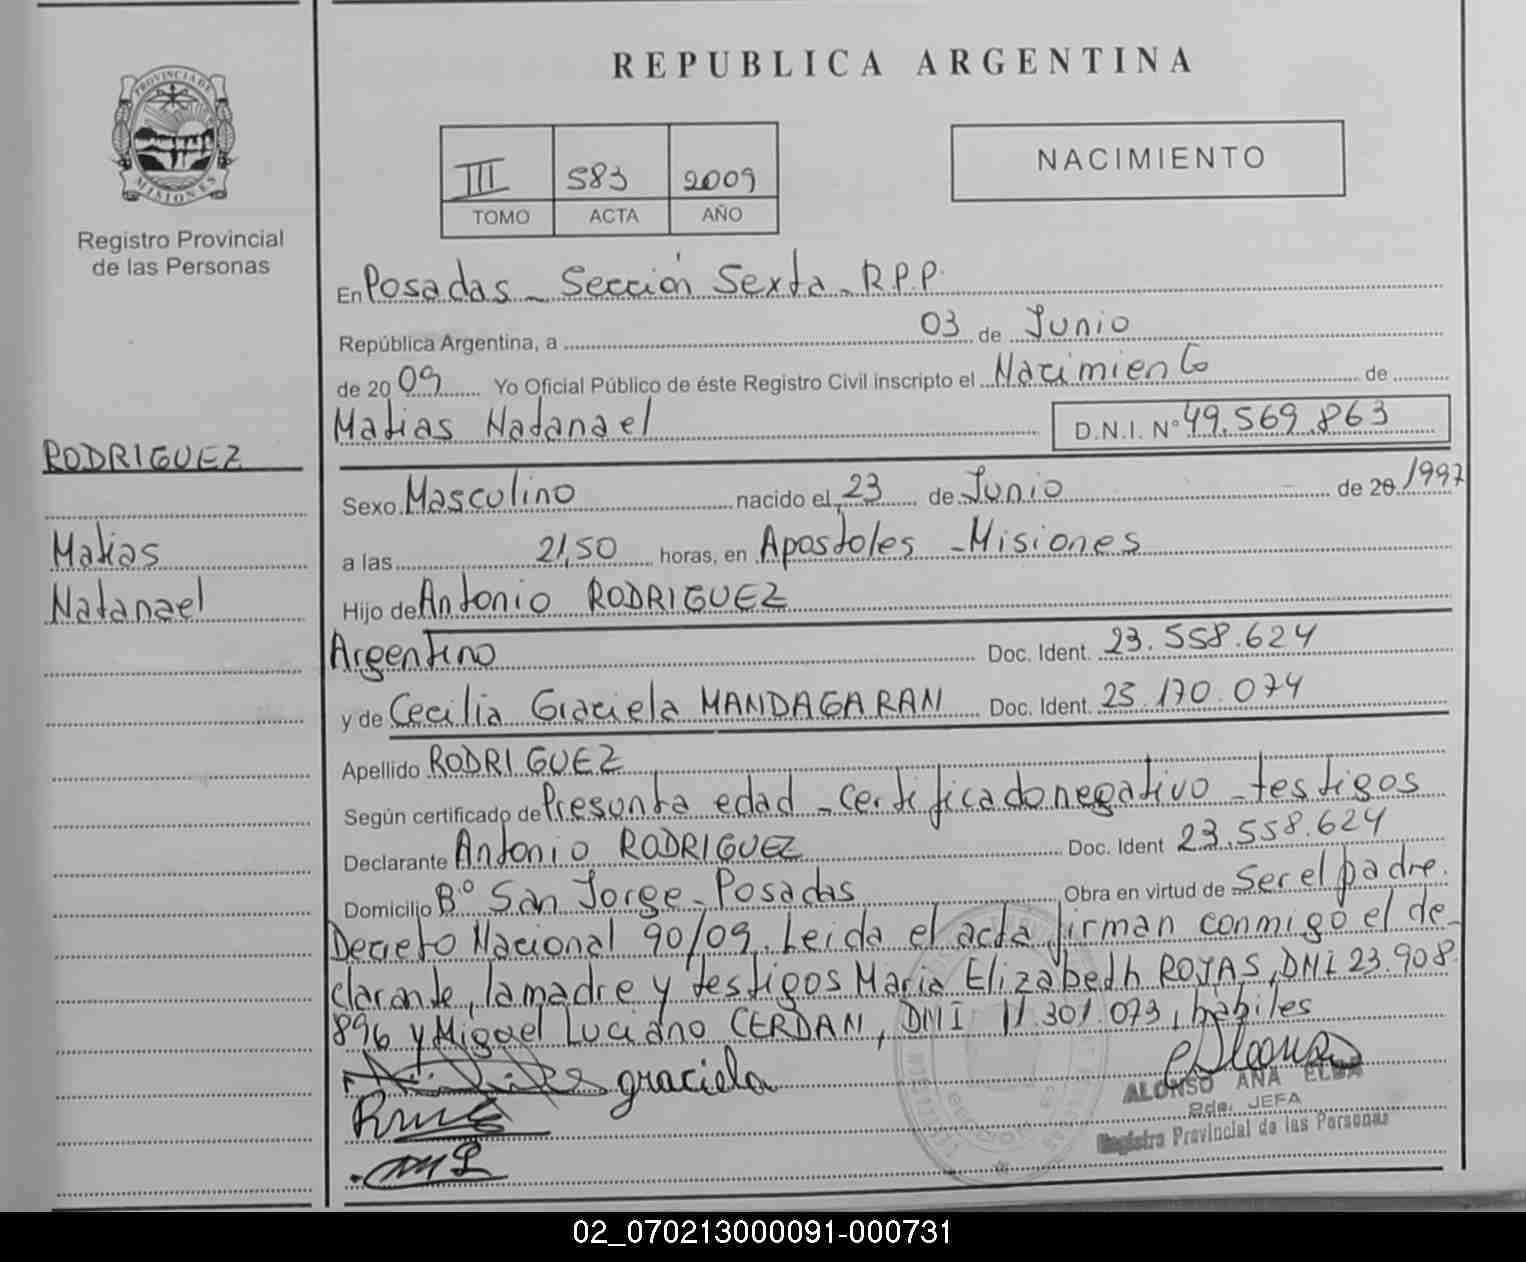 REPUBLICA ARGENTINA
PROVINCIA DE
MISIONES
Registro Provincial
de las Personas
III 583 2009
TOMO ACTA AÑO
NACIMIENTO
En Posadas - Sección Sexta - R.P.P.
República Argentina, a 03 de Junio
de 2009 Yo Oficial Público de éste Registro Civil inscripto el Nacimiento de
Matias Natanael D.N.I. N° 49.569.863
RODRIGUEZ
Matias
Natanael
Sexo Masculino nacido el 23 de Junio de 20 1997
a las 21,50 horas, en Apostoles - Misiones
Hijo de Antonio RODRIGUEZ
Argentino Doc. Ident. 23.558.624
y de Cecilia Graciela MANDAGARAN Doc. Ident. 25.170.074
Apellido RODRIGUEZ
Según certificado de Presunta edad - certificado negativo - testigos
Declarante Antonio RODRIGUEZ Doc. Ident 23.558.624
Domicilio B° San Jorge - Posadas Obra en virtud de Ser el padre.
Decreto Nacional 90/09. Leida el acta firman conmigo el de-
clarante, la madre y testigos Maria Elizabeth ROJAS, DNI 23.908.
896 y Miguel Luciano CERDAN, DNI 11.301.073, hábiles
graciela
ALONSO ANA ELBA
JEFA
Registro Provincial de las Personas
02_070213000091-000731